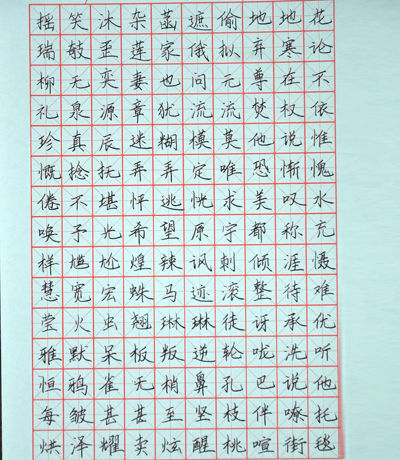 摇笑沐杂菡遮偷地地花
瑞敏歪莲家俄拟弃寒论
柳无奕妻也问元尊在不
礼泉源章犹流流焚权依
珍真辰迷糊模莫他说惟
慨捻抚弄弄定唯恐惭愧
倦不堪怦逃恍求美叹水
唤予光希望原宇都称充
样尴尬煌辣讽刺倾涯慑
慧宽宏蛛马迹滚整待难
莹火虫翘琳琳徒讶承优
雅默呆板叛逆轮咙洗听
恒鸦雀无梢鼻孔巴说他
每皱甚甚至坚枝伴嘹托
烘泽耀卖炫醒桃喧街毯